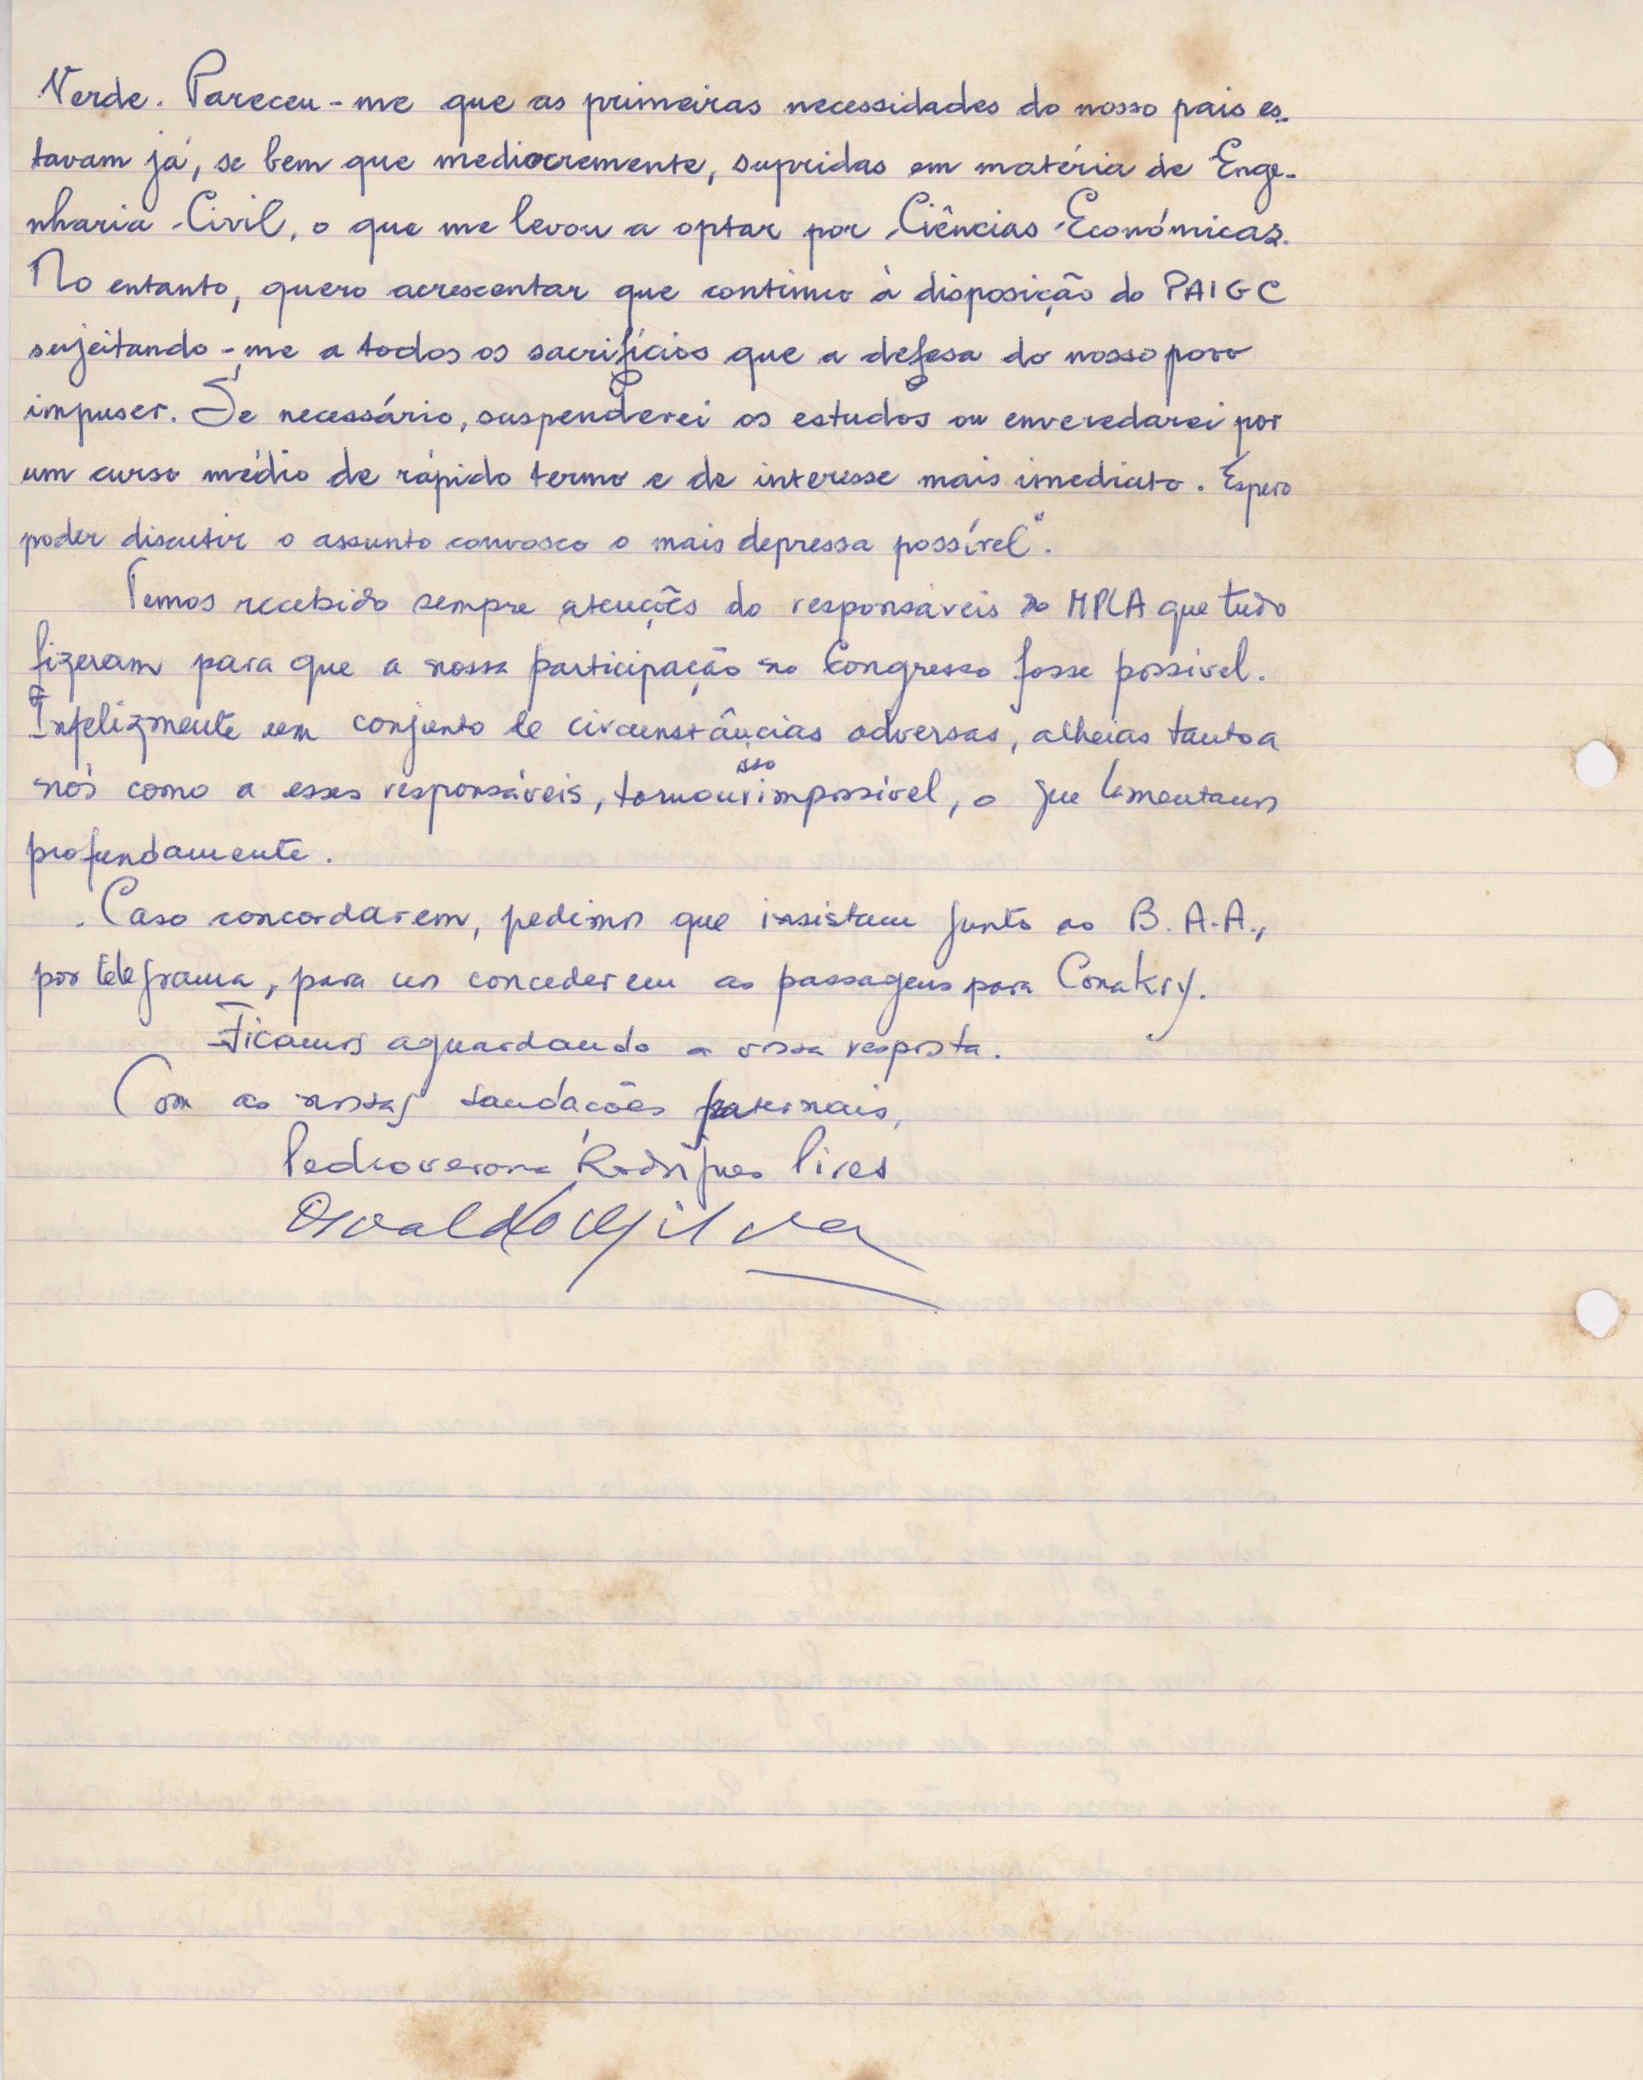 Verde. Pareceu-me que as primeiras necessidades do nosso país es-
tavam já, se bem que mediocremente, supridas em matéria de Enge-
nharia Civil, o que me levou a optar por Ciências Económicas.
No entanto, quero acrescentar que continuo à disposição do PAIGC
sujeitando-me a todos os sacrifícios que a defesa do nosso povo
impuser. Se necessário, suspenderei os estudos ou enveredarei por
um curso médio de rápido termo e de interesse mais imediato. Espero
poder discutir o assunto convosco o mais depressa possível".
Temos recebido sempre atenções do responsáveis do MPLA que tudo
fizeram para que a nossa participação no Congresso fosse possivel.
Infelizmente um conjunto de circunstâncias adversas, alheias tanto a
nós como a esses responsáveis, tornou isso impossível, o que lamentamos
profundamente.
Caso concordarem, pedimos que insistam junto ao B.A.A.,
por telegrama, para nos concederem as passagens para Conakry.
Ficamos aguardando a vossa resposta.
Com as nossas saudações fraternais,
Pedro Verona Rodrigues Pires
Osvaldo Silva